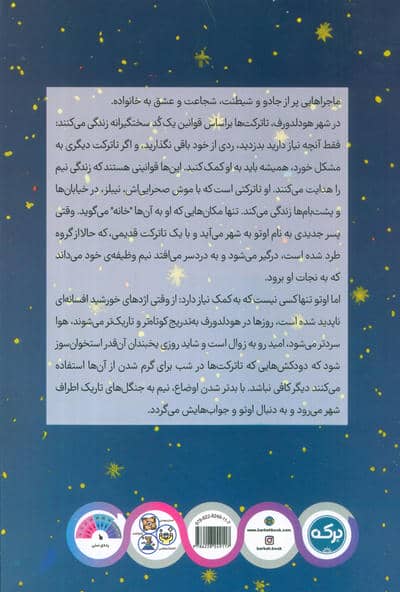 ماجراهایی پر از جادو و شیطنت، شجاعت و عشق به خانواده.
در شهر هودلدورف، تاترکت‌ها براساس قوانین یک کُد سختگیرانه زندگی می‌کنند:
فقط آنچه نیاز دارید بدزدید، ردی از خود باقی نگذارید، و اگر تاترکت دیگری به
مشکل خورد، همیشه باید به او کمک کنید. این‌ها قوانینی هستند که زندگی نیم
را هدایت می‌کنند. او تاترکتی است که با موش صحرایی‌اش، نیبلز، در خیابان‌ها
و پشت‌بام‌ها زندگی می‌کند. تنها مکان‌هایی که او به آن‌ها "خانه" می‌گوید. وقتی
پسر جدیدی به نام اوتو به شهر می‌آید و با یک تاترکت قدیمی، که حالا از گروه
طرد شده است، درگیر می‌شود و به دردسر می‌افتد نیم وظیفه‌ی خود می‌داند
که به نجات او برود.
اما اوتو تنها کسی نیست که به کمک نیاز دارد: از وقتی اژدهای خورشید افسانه‌ای
ناپدید شده است، روزها در هودلدورف به‌تدریج کوتاه‌تر و تاریک‌تر می‌شوند، هوا
سردتر می‌شود، امید رو به زوال است و شاید روزی یخبندان آن‌قدر استخوان‌سوز
شود که دودکش‌هایی که تاترکت‌ها در شب برای گرم شدن از آن‌ها استفاده
می‌کنند دیگر کافی نباشد. با بدتر شدن اوضاع، نیم به جنگل‌های تاریک اطراف
شهر می‌رود و به دنبال اوتو و جواب‌هایش می‌گردد.
برکه
www.barkehbook.com
barkeh.book
رده‌ی سنی